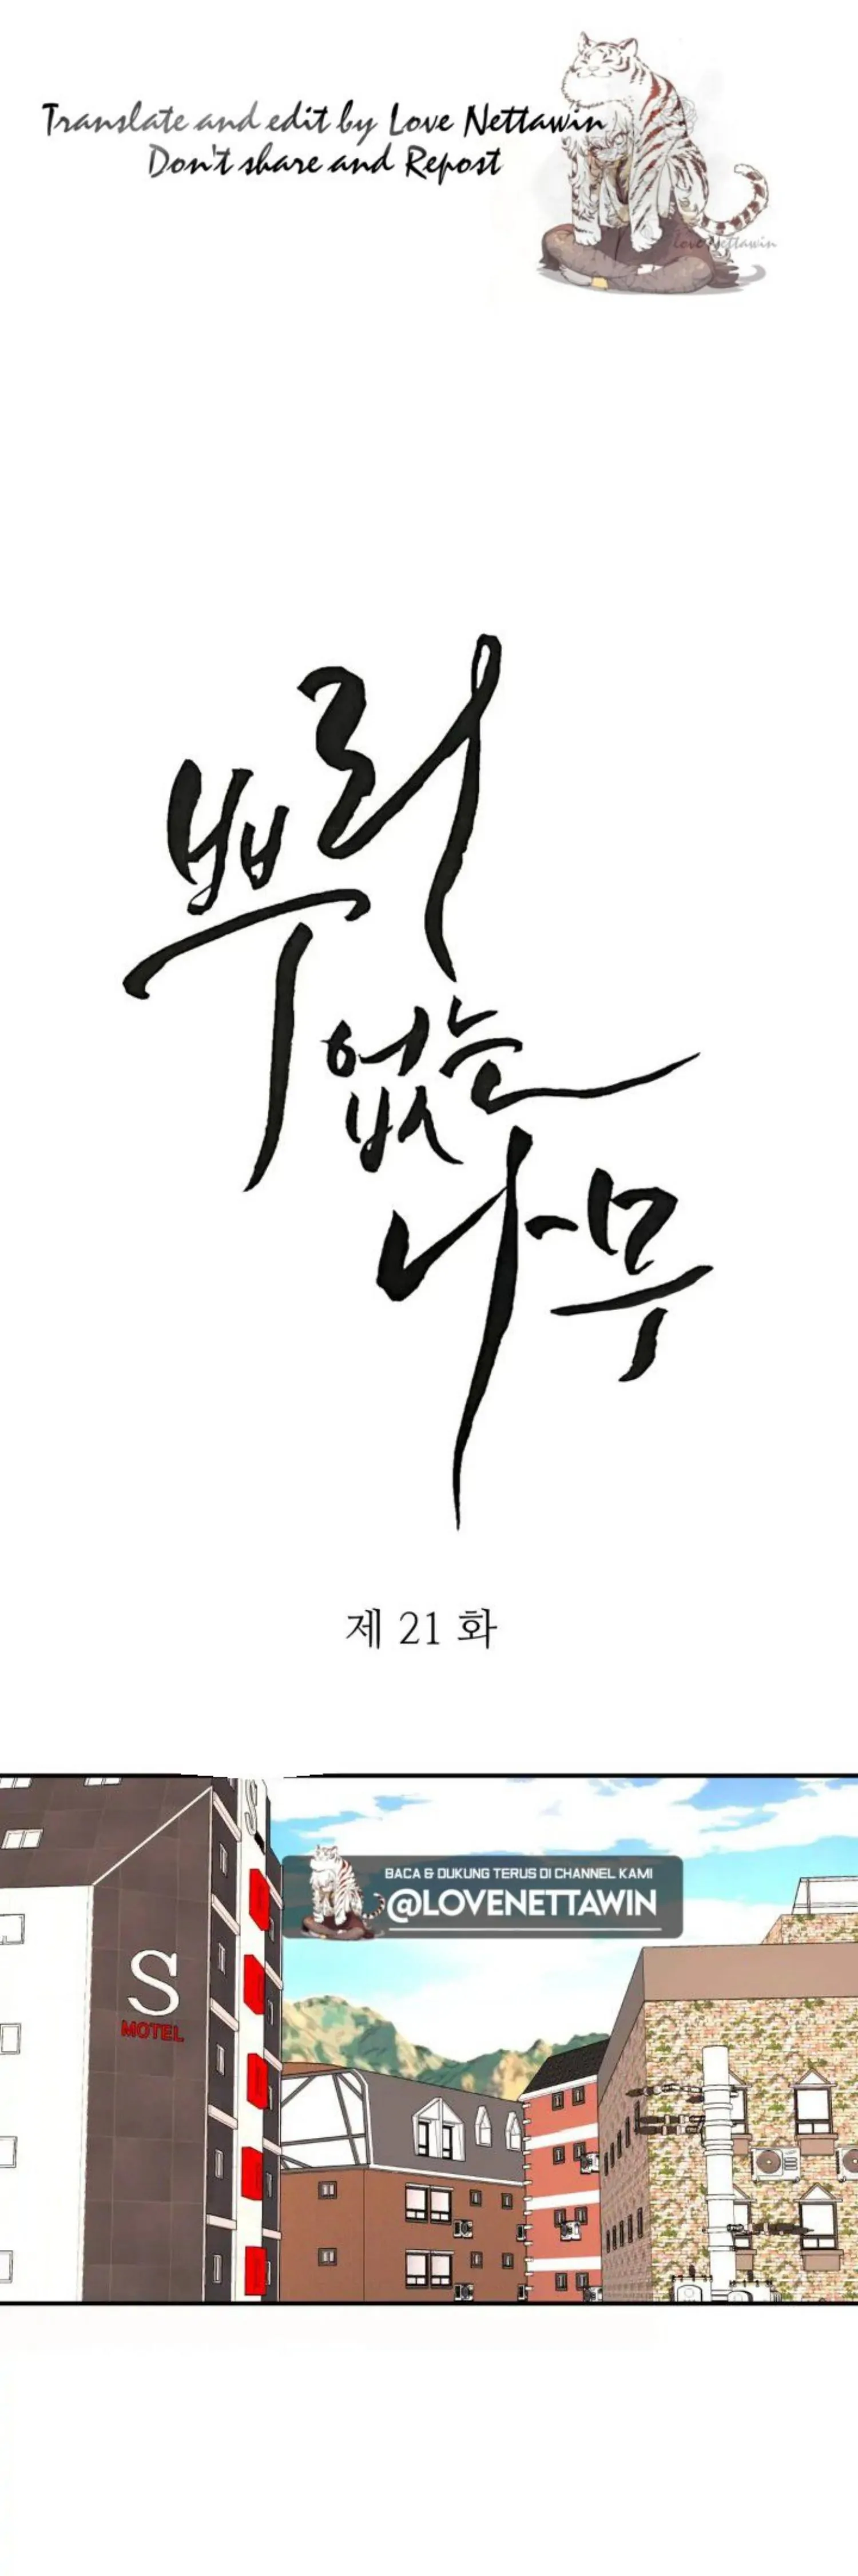 Translate and edit by Love Nettawin
Don't share and Repost
Love Nettawin
뿌리
없는
나무
제 21 화
S
BACA & DUKUNG TERUS DI CHANNEL KAMI
@LOVENETTAWIN
S
MOTEL